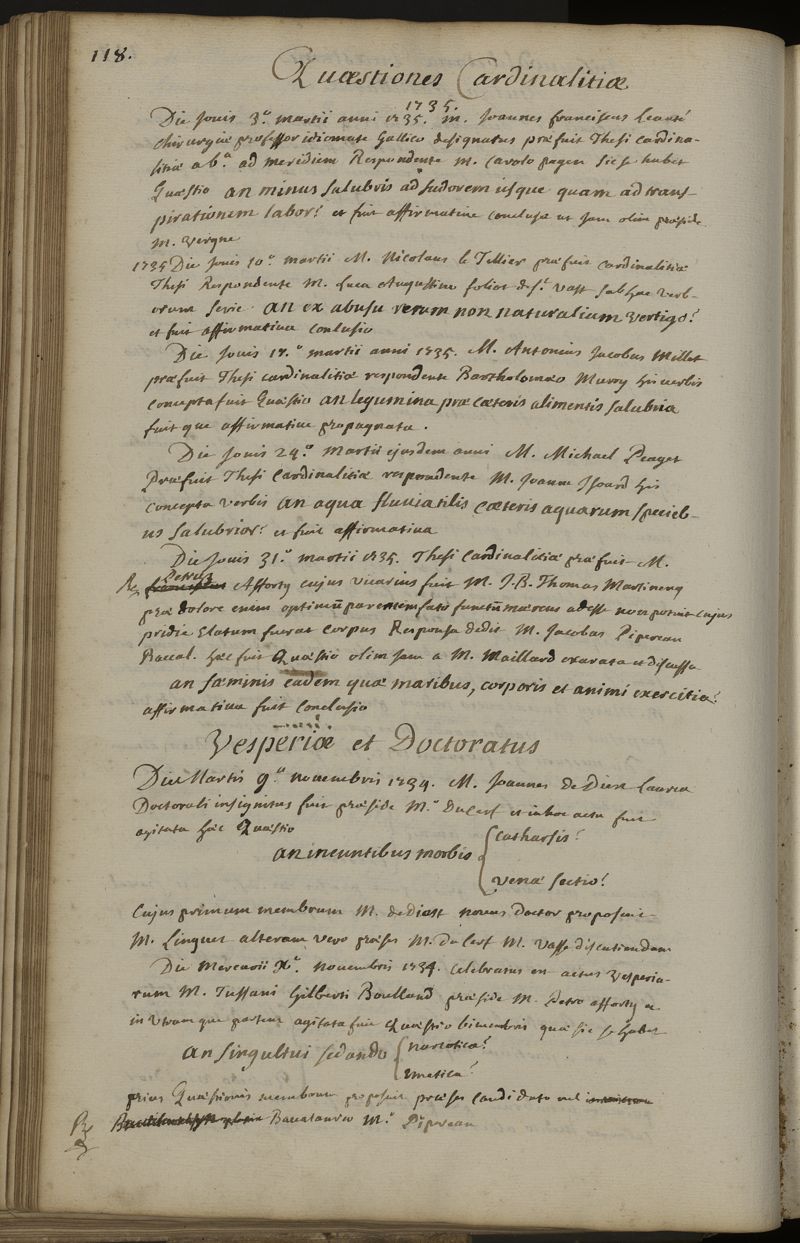 118.
Quæstiones Cardinalitiæ
1735.
Die Jovis 3.ª martii anni 1735. M. Joannes franciscus Leauté
chirurgiæ professor idiomate Gallico designatus præfuit Thesi Cardina-
litiæ a 6.ª ad meridiem Respondente M. Carolo pagen sic se habet
Quæstio an minus salubris ad sudorem usque quam ad trans-
pirationem labor? et fuit affirmative conclusa ut jam olim præside
M. Vergne
1735 Die Jovis 10.ª martii M. Nicolaus le Tellier præfuit cardinalitiæ
Thesi Respondente M. Luca Augustino foliot de S.t Vast sub hac verb-
orum serie an ex abusu rerum non naturalium vertigo?
et fuit affirmativa conlusio
Die Jovis 17.ª martii anni 1735. M. Antonius Jacobus Millet
præfuit Thesi cardinalitiæ respondente Bartholomæo Murry his verbis
concepta fuit Quæstio an legumina præ cæteris alimentis salubria
fuitque affirmative propugnata.
Die Jovis 24.ª Martii ejusdem anni M. Michael Peaget
Præfuit Thesi Cardinalitiæ respondente M. Joanne Isoard his
concepta verbis an aqua fluviatilis cæteris aquarum specieb-
us salubrior? et fuit affirmativa
Die Jovis 31.ª martii 1735. Thesi Cardinalitiæ præfuit M.
Petrus
Afforty cujus vicarius fuit M. J.B. Thomas Martinenq
præ dolore enim optimū parentem fatis functū mærens adesse non potuit cujus
pridie elatum fuerat corpus Responsa dedit M. Jacobus Pipereau
Baccal. hæc fuit Quæstio olim jam a M. Maillard exarata et discussa
an fæminis eadem quæ maribus, corporis et animi exercitia?
affirmativa fuit Conclusio
Vesperiæ et Doctoratus
Die Martis 9.ª novembris 1734. M. Joannes de Diest Laurea
Doctorali insignitus fuit præside M.º Ducerf et in hoc actu fuit
agitata hæc Quæstio
an ineuntibus morbis { catharsis?
venæ sectio?
Cujus primum membrum M. de diest novus Doctor proposuit
M. Linguet alteram vero præses M. Du Cerf M. Vasse discutiendam
Die Mercurii X.ª novembris 1734. Celebratus est actus vesperia-
rum M. Tussani Gilberti Boulland præside M. Petro afforty et
in utramque partem agitata fuit Quæstio bimembris quæ sic se habet
an singultui sedando { narcotica?
emetica?
prius Quæstionis membrum proposuit præses candidato vel
Baccalaureo M.º Pipereau